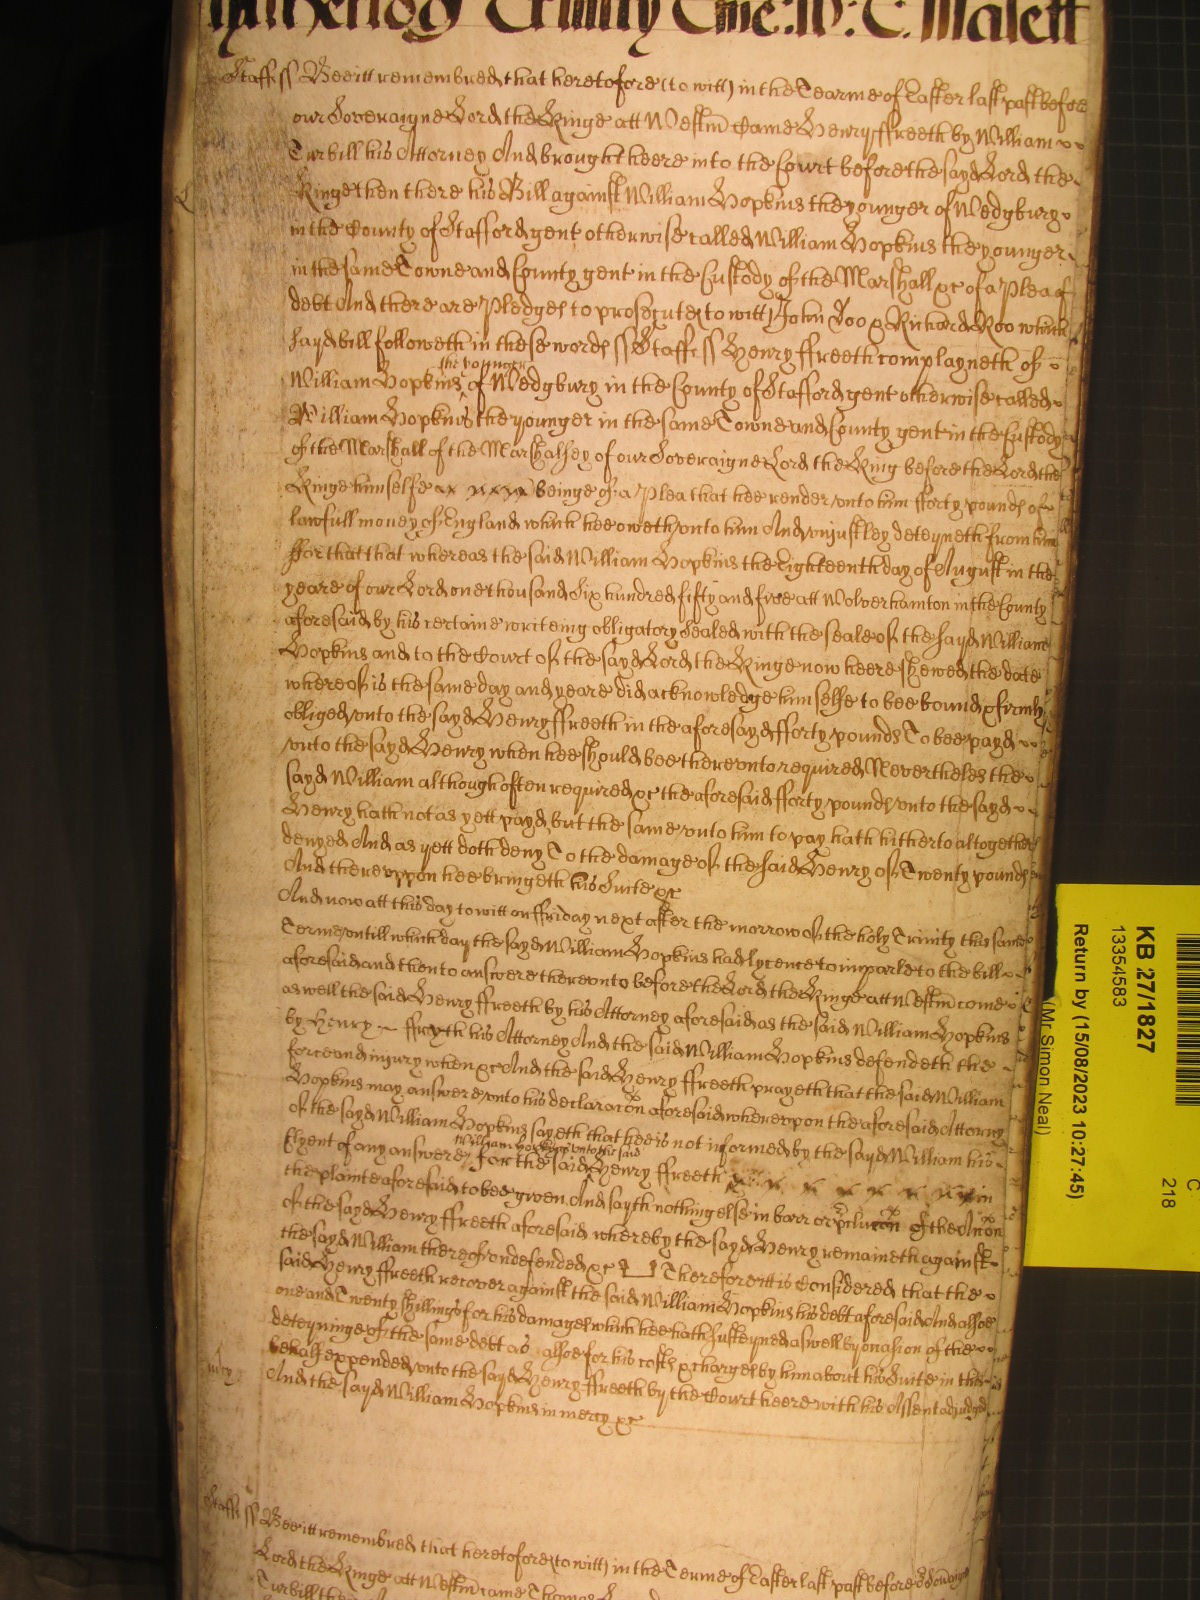 Trinity Tme: W: T. Malett
Staff ss Bee itt remembred that heretofore (to witt) in the Tearme of Easter last past before
our Soveraigne Lord the Kinge att Westm Came Henry ffreeth by William
Turbill his Attorney And brought heere into the Court before the sayd Lord the
Kinge then there his Bill against William Hopkins the younger of Wedgbury
in the County of Stafford gent otherwise called William Hopkins the younger
in the same Towne and County gent in the Custody of the Marshall &c of a Plea of
debt And there are Pledges to prosecute (to witt) John Doo & Richard Roo which
sayd bill followeth in these words ss Staff ss Henry ffreeth complayneth of
the younger
William Hopkins of Wedgbury in the County of Stafford gent otherwise called
William Hopkins the younger in the same Towne and County gent in the Custody
of the Marshall of the Marshalsey of our Soveraigne Lord the King before the Lord the
Kinge himselfe beinge of a Plea that hee render unto him fforty pounds of
lawfull money of England which hee oweth unto him And unjustley deteyneth from him
ffor that that whereas the said William Hopkins the Eighteenth day of August in the
yeare of our Lord one thousand Six hundred fifty and five att Wolverhamton in the County
aforesaid by his certaine writeing obligatory Sealed with the seale of the sayd William
Hopkins and to the Court of the sayd Lord the Kinge now heere shewed the date
whereof is the same day and yeare did acknowledge himselfe to bee bound & firmly
obliged unto the sayd Henry ffreeth in the aforesayd fforty pounds To bee payd
unto the sayd Henry when hee should bee thereunto required Neverthelés the
sayd William although often required &c the aforesaid fforty pounds unto the sayd
Henry hath not as yett payd but the same unto him to pay hath hitherto altogether
denyed And as yett doth deny To the damage of the said Henry of Twenty pounds
And thereuppon hee bringeth his Suite &c
And now att this day to witt on ffriday next after the morrow of the holy Trinity this same
Terme untill which day the sayd William Hopkins had lycence to imparle to the bill
aforesaid and then to answere thereunto before the Lord the Kinge att Westm come
as well the said Henry ffreeth by his Attorney aforesaid as the said William Hopkins
by Henry ffryth his Attorney And the said William Hopkins defendeth the
force and injury when &c And the said Henry ffreeth prayeth that the said William
Hopkins may answere unto his declaracon aforesaid whereupon the aforesaid Attorny
of the sayd William Hopkins sayeth that hee is not informed by the sayd William his
William Hopkins unto the said
Clyent of any answere for the said Henry ffreeth in
the plainte aforesaid to bee given And sayth nothing else in barr or pclucon of the Accon
of the sayd Henry ffreeth aforesaid whereby the sayd Henry remaineth against
the sayd William thereof undefended &c Therefore itt is Considered that the
said Henry ffreeth recover against the said William Hopkins his debt aforesaid And alsoe
one and Twenty shillings for his damages which hee hath susteyned aswell by occasion of the
deteyninge of the same debt as alsoe for his costs & charges by him about his Suite in this
behalf expended unto the sayd Henry ffreeth by the Court heere with his Assent adjudged
And the sayd William Hopkins in mercy &c
mcy
Staff ss Bee itt remembred that heretofore (to witt) in the Terme of Easter last past before our Soveraigne
Lord the Kinge att Westm came Thomas
Turbill his
KB 27/1827
13354583
Return by (15/08/2023 10:27:45)
(Mr Simon Neal)
C
218